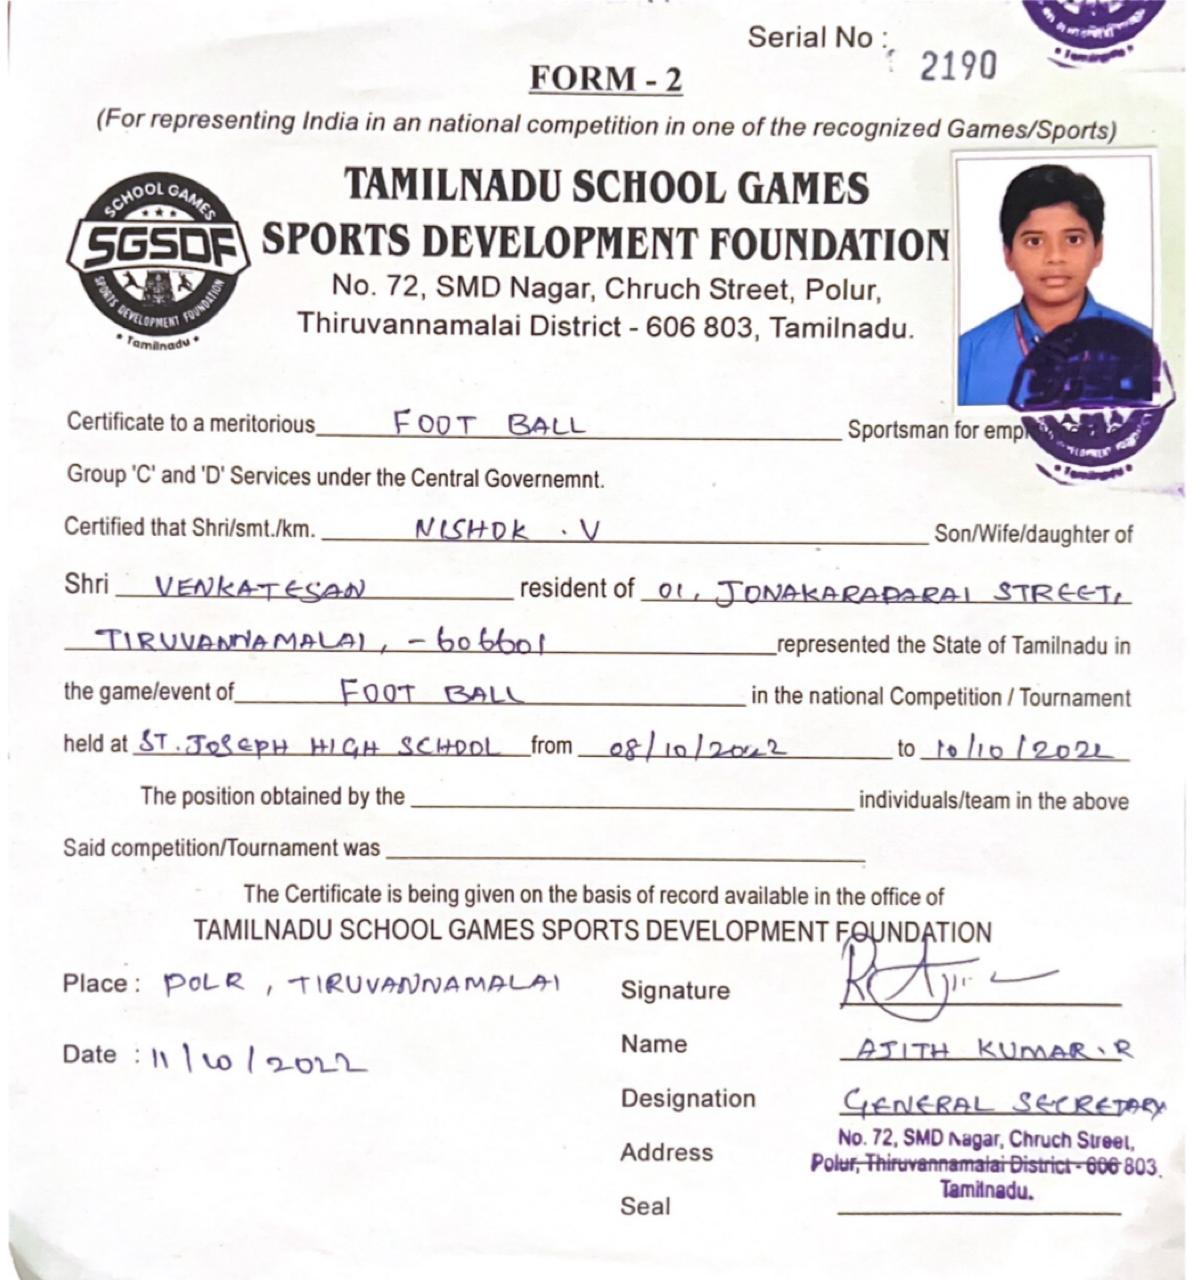 Serial No : 2190
FORM - 2
(For representing India in an national competition in one of the recognized Games/Sports)
SCHOOL GAMES
SGSDF
SPORTS DEVELOPMENT FOUNDATION
• Tamilnadu •
TAMILNADU SCHOOL GAMES
SPORTS DEVELOPMENT FOUNDATION
No. 72, SMD Nagar, Chruch Street, Polur,
Thiruvannamalai District - 606 803, Tamilnadu.
Certificate to a meritorious FOOT BALL Sportsman for empl
Group 'C' and 'D' Services under the Central Governemnt.
Certified that Shri/smt./km. NISHOK . V Son/Wife/daughter of
Shri VENKATESAN resident of 01, JONAKARAPARAI STREET,
TIRUVANNAMALAI, - 606601 represented the State of Tamilnadu in
the game/event of FOOT BALL in the national Competition / Tournament
held at ST. JOSEPH HIGH SCHOOL from 08/10/2022 to 10/10/2022
The position obtained by the individuals/team in the above
Said competition/Tournament was
The Certificate is being given on the basis of record available in the office of
TAMILNADU SCHOOL GAMES SPORTS DEVELOPMENT FOUNDATION
Place : POLR , TIRUVANNAMALAI
Signature
Date : 11/10/2022
Name AJITH KUMAR . R
Designation GENERAL SECRETARY
Address No. 72, SMD Nagar, Chruch Street,
Polur, Thiruvannamalai District - 606 803.
Tamilnadu.
Seal